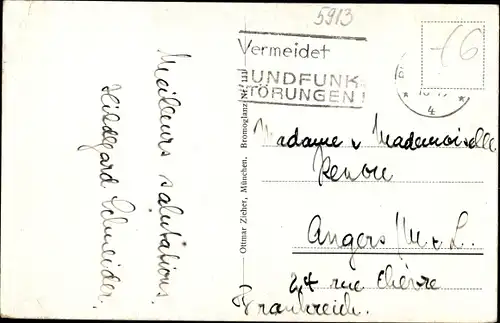 5913
Vermeidet
UNDFUNK-
TÖRUNGEN!
* *
4
-/6
Meilleurs salutations.
Hildegard Schneider.
Ottmar Zieher, München. Bromoglanz Nr.
Madame u Mademoiselle
Renou
Angers /M. & L.
24 rue Chèvre
Frankreich.